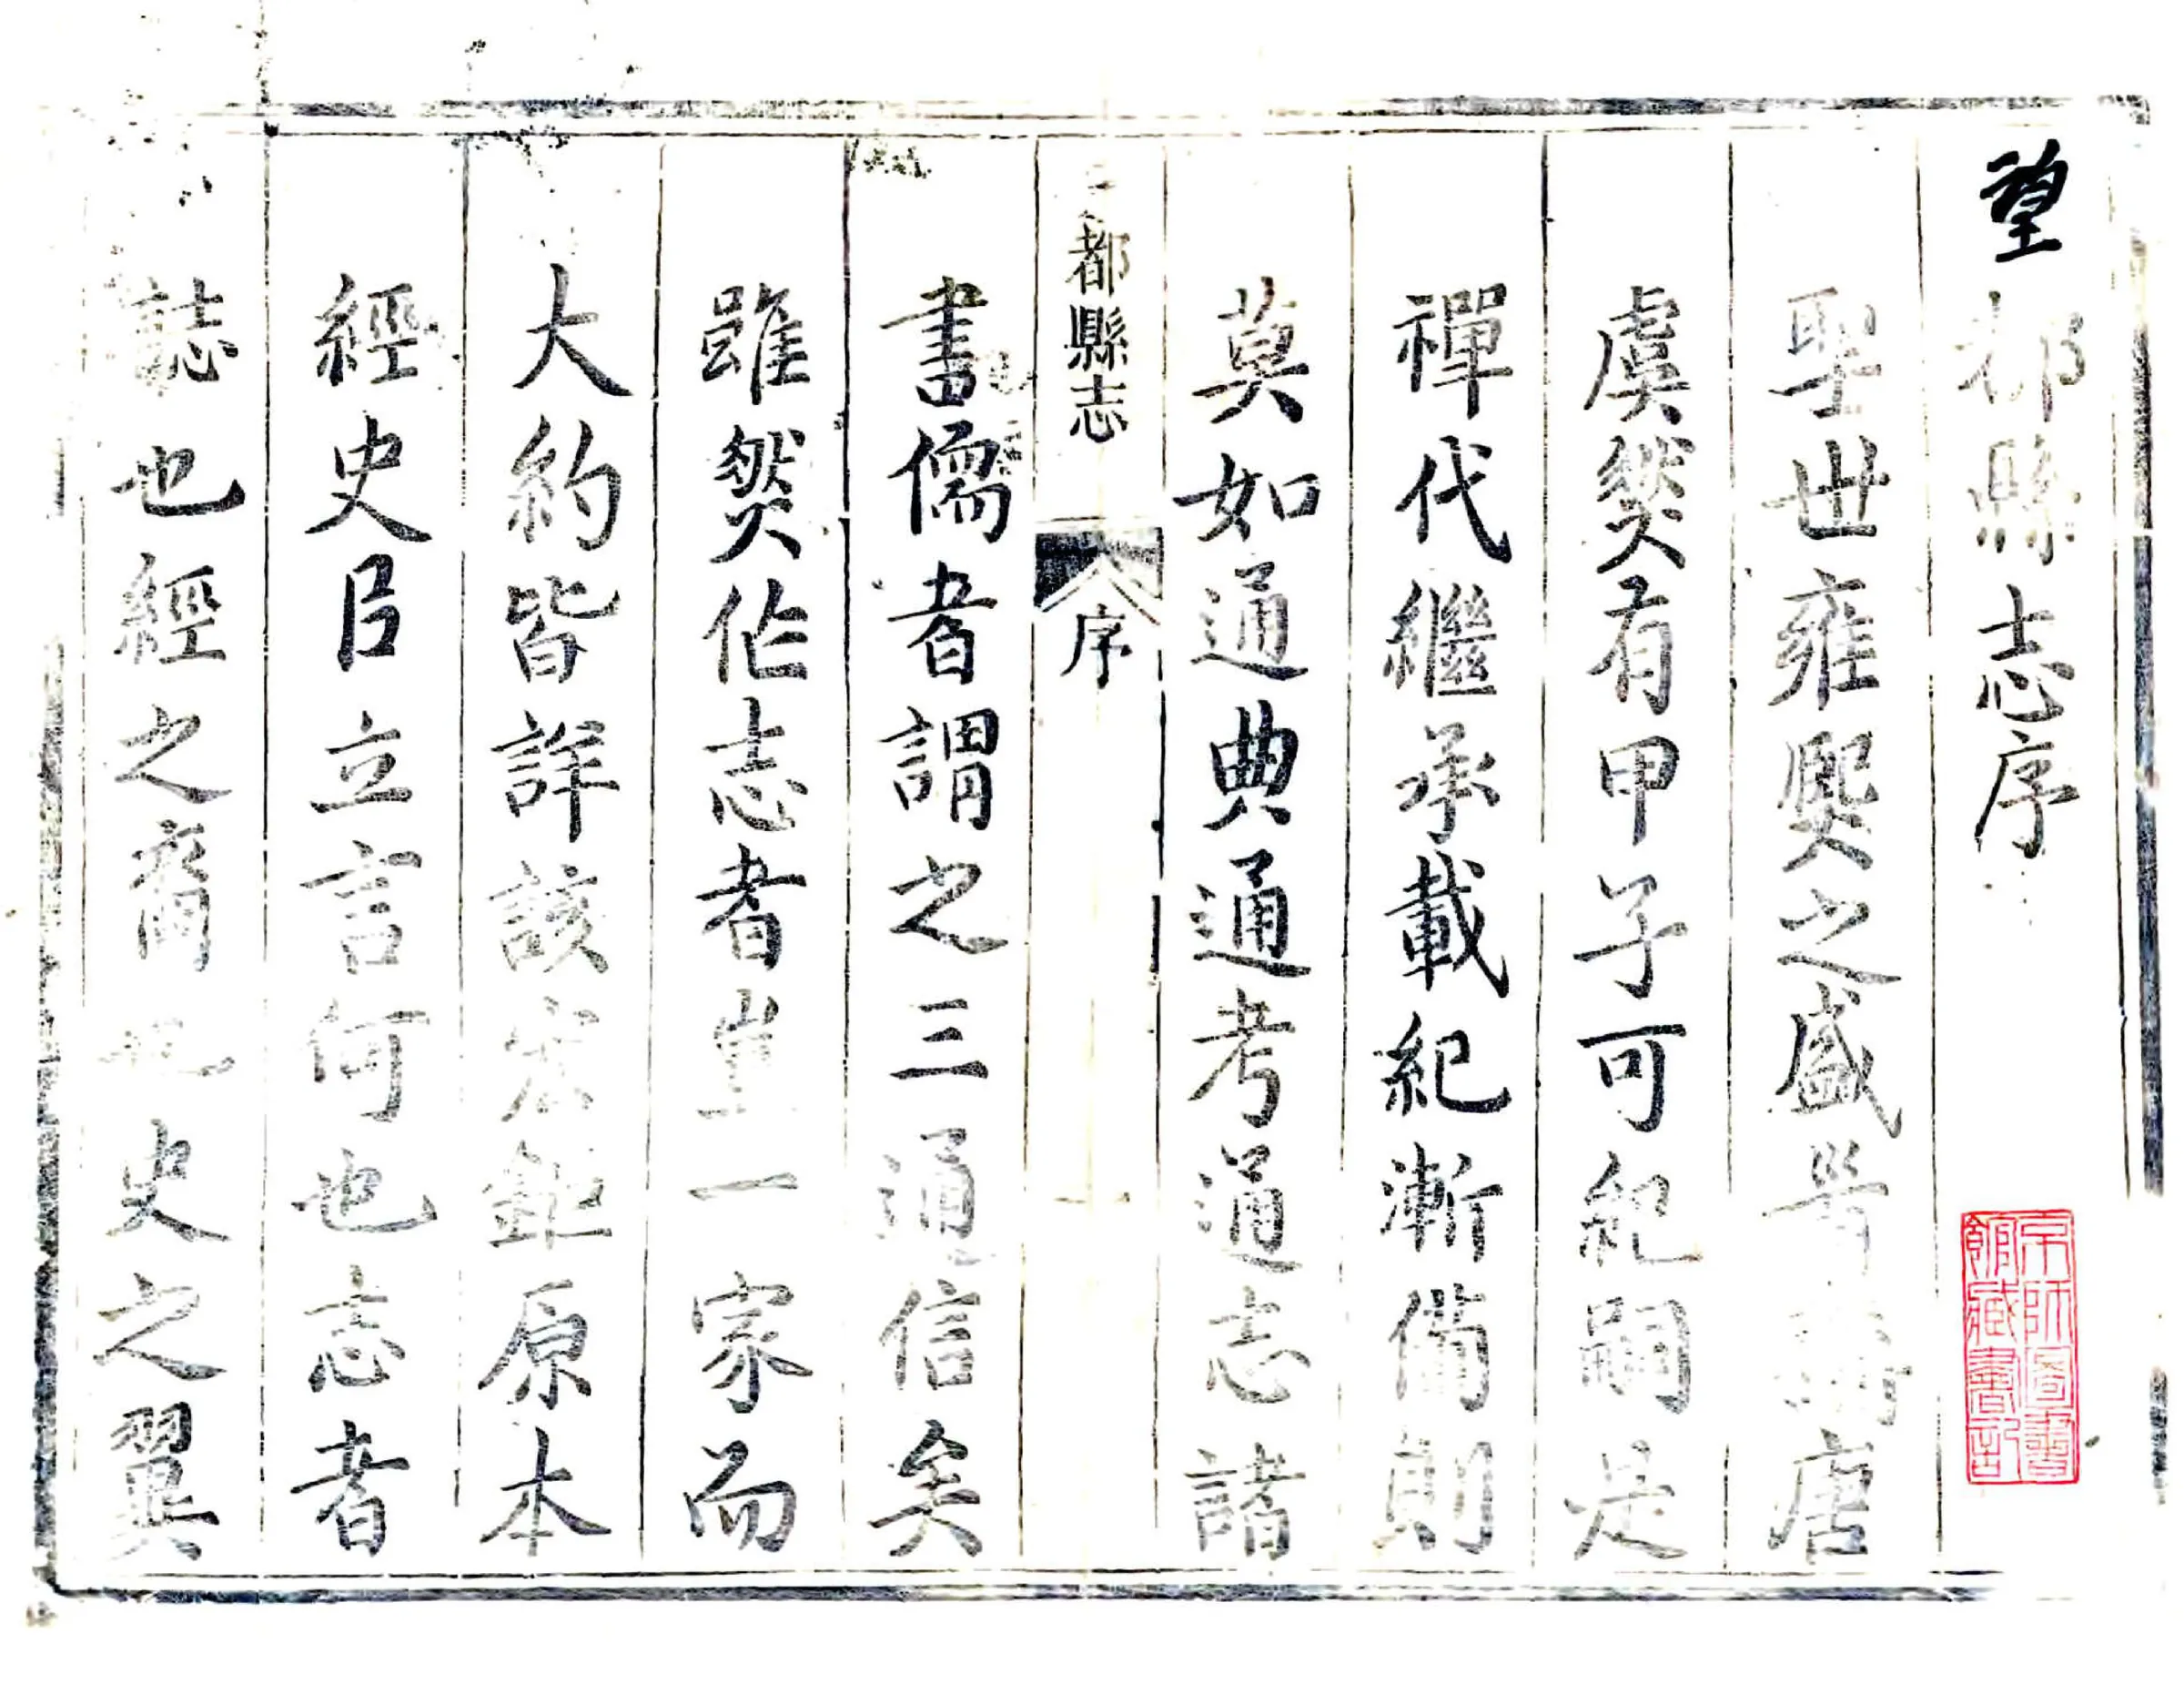 望都縣志序
京師圖書
館藏書記
聖世雍熙之盛唐
虞然有甲子可紀嗣是
禪代繼承載紀漸備則
莫如通典通考通志諸
都縣志 序 一
書儒者謂之三通信矣
雖然作志者豈一家而
大約皆詳該宏鉅原本
經史臣立言何也志者
誌也經之裔也史之翼